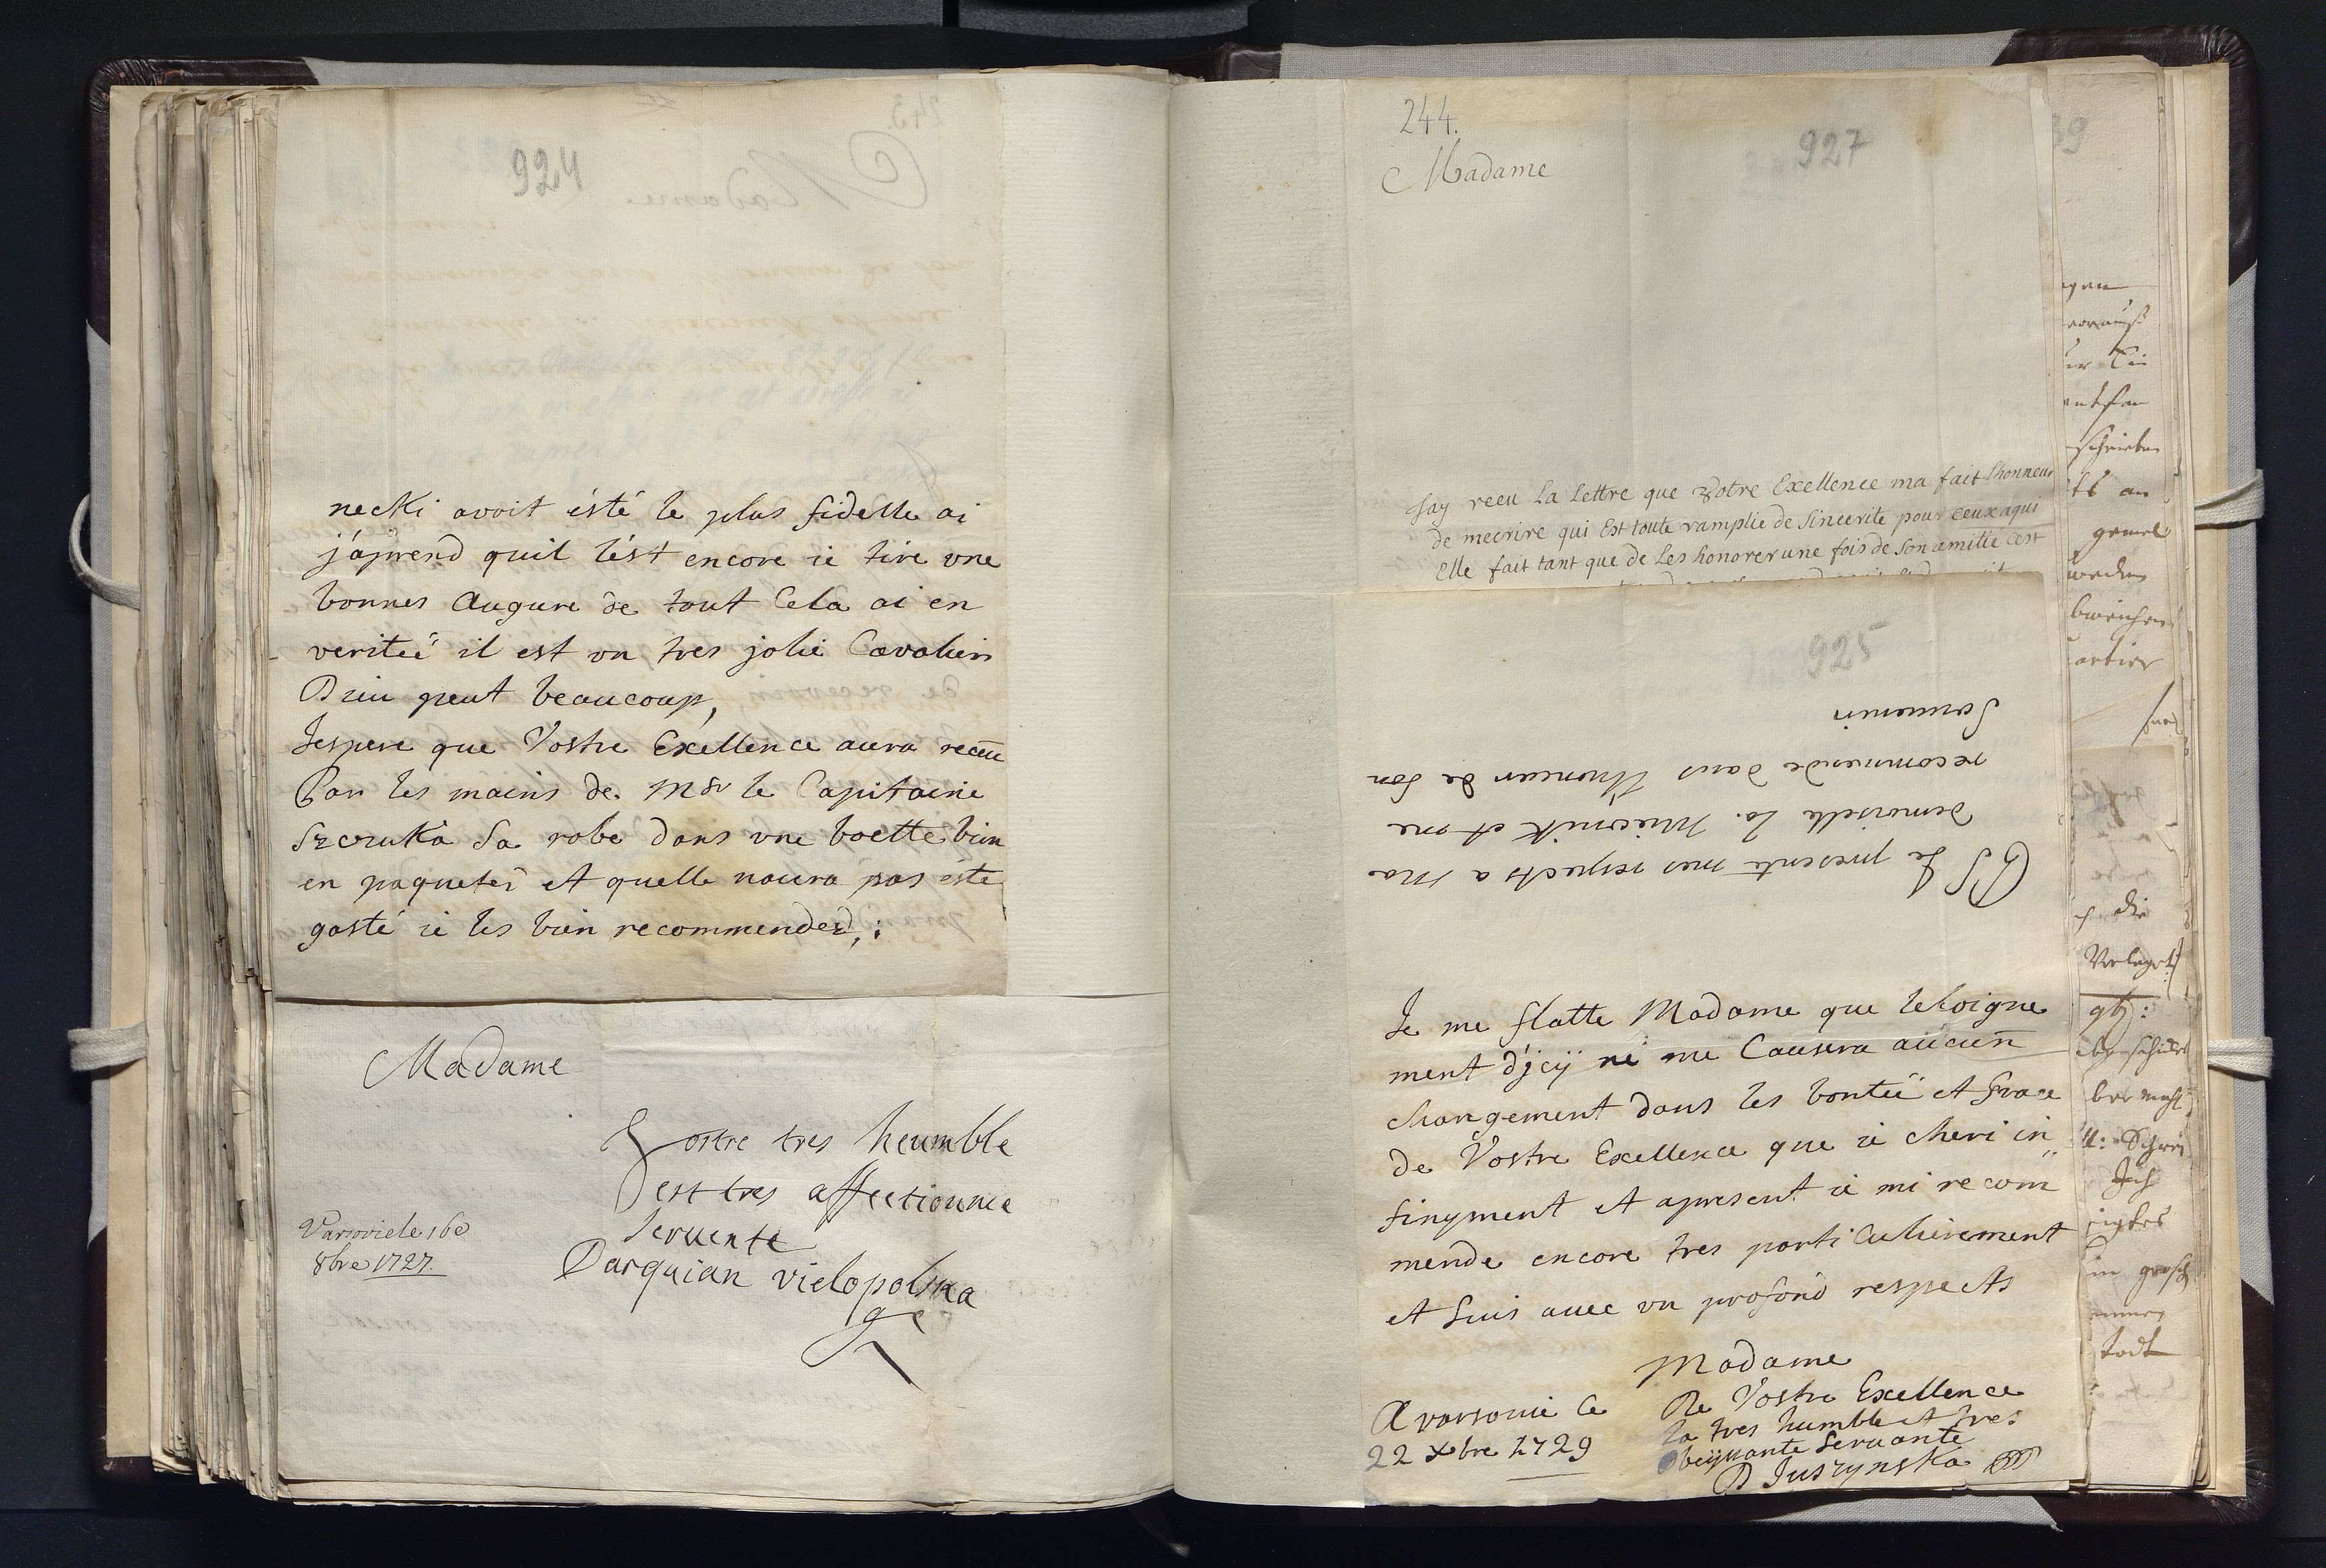 924
necki avoit ésté le plus fidelle ai
j'aprend quil lést encore ie tire une
bonnes Augure de tout Cela ai en
veriteé il est un tres jolie Cavalier
Dieu peut beaucoup,
Jespere que Vostre Exellence aura receu
Par les mains de Msr le Capitaine
Szczuka Sa robe dans une boette bien
en paqueteé et quelle naura pas éste
gasté ie les bien recommender,:
Madame
Vostre tres heumble
est tres affectionnee
Servente
Darquian vielopolska
Varsovie le 16e
8bre 1727.
244.
927
Madame
Jay receu La Lettre que Votre Exellence ma fait Lhonneur
de mecrire qui Est toute ramplie de Sincerite pour ceux aqui
Elle fait tant que de Les honorer une fois de Son amitie Cest
925
PS Je presente mes respects a Ma
demoiselle La et me
recommende dans l'honneur de Son
Souvenir
Je me flatte Madame que leloigne
ment d'jcÿ ne me Causera aúcun
changement dans les bonteé et Grace
de Vostre Exellence que ie cheri in
finyment et apresent ie mi recom
mende encore tres particulierement
et Suis avec un profond respects
Madame
De Vostre Exellence
la tres humble et tres
obeyssante Servante
D Juszynska
A varsovie Ce
22 xbre 1729
39
die
gb:
an